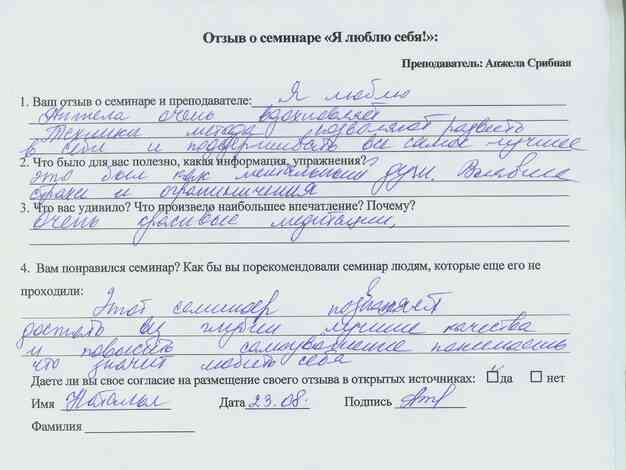 Отзыв о семинаре «Я люблю себя!»:
Преподаватель: Анжела Срибная
1. Ваш отзыв о семинаре и преподавателе: Я люблю
Анжела очень вдохновляет
Техники метода позволяют развить
в себе и поддерживать все самое лучшее
2. Что было для вас полезно, какая информация, упражнения?
это был как ментальный душ.
страхи и ограничения
3. Что вас удивило? Что произвело наибольшее впечатление? Почему?
очень красивые медитации,
4. Вам понравился семинар? Как бы вы порекомендовали семинар людям, которые еще его не
проходили:
Этот семинар позволяет
достать из глубин лучшие качества
и повысить самоуважение
что значит любить себя
Даете ли вы свое согласие на размещение своего отзыва в открытых источниках: да нет
Имя Наталья Дата 23.08. Подпись
Фамилия